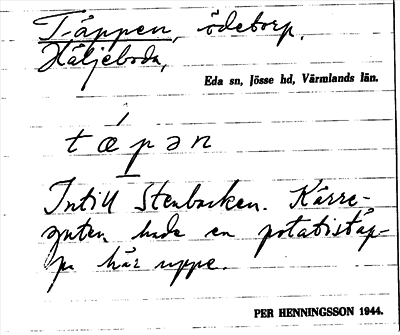 Täppen, ödetorp,
Häljeboda,
Eda sn, Jösse hd, Värmlands län.
tæ´pən
Intill Stenbacken. Kärre-
gutten hade en potatistäp-
pa här uppe.
PER HENNINGSSON 1944.